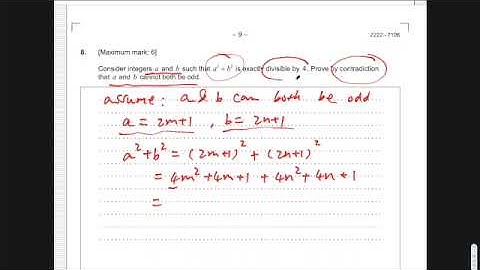 – 9 –
2222 – 7106
8. [Maximum mark: 6]
Consider integers a and b such that a² + b² is exactly divisible by 4. Prove by contradiction
that a and b cannot both be odd.
assume: a & b can both be odd
a = 2m+1 , b = 2n+1
a² + b² = (2m+1)² + (2n+1)²
= 4m² + 4m + 1 + 4n² + 4n + 1
=